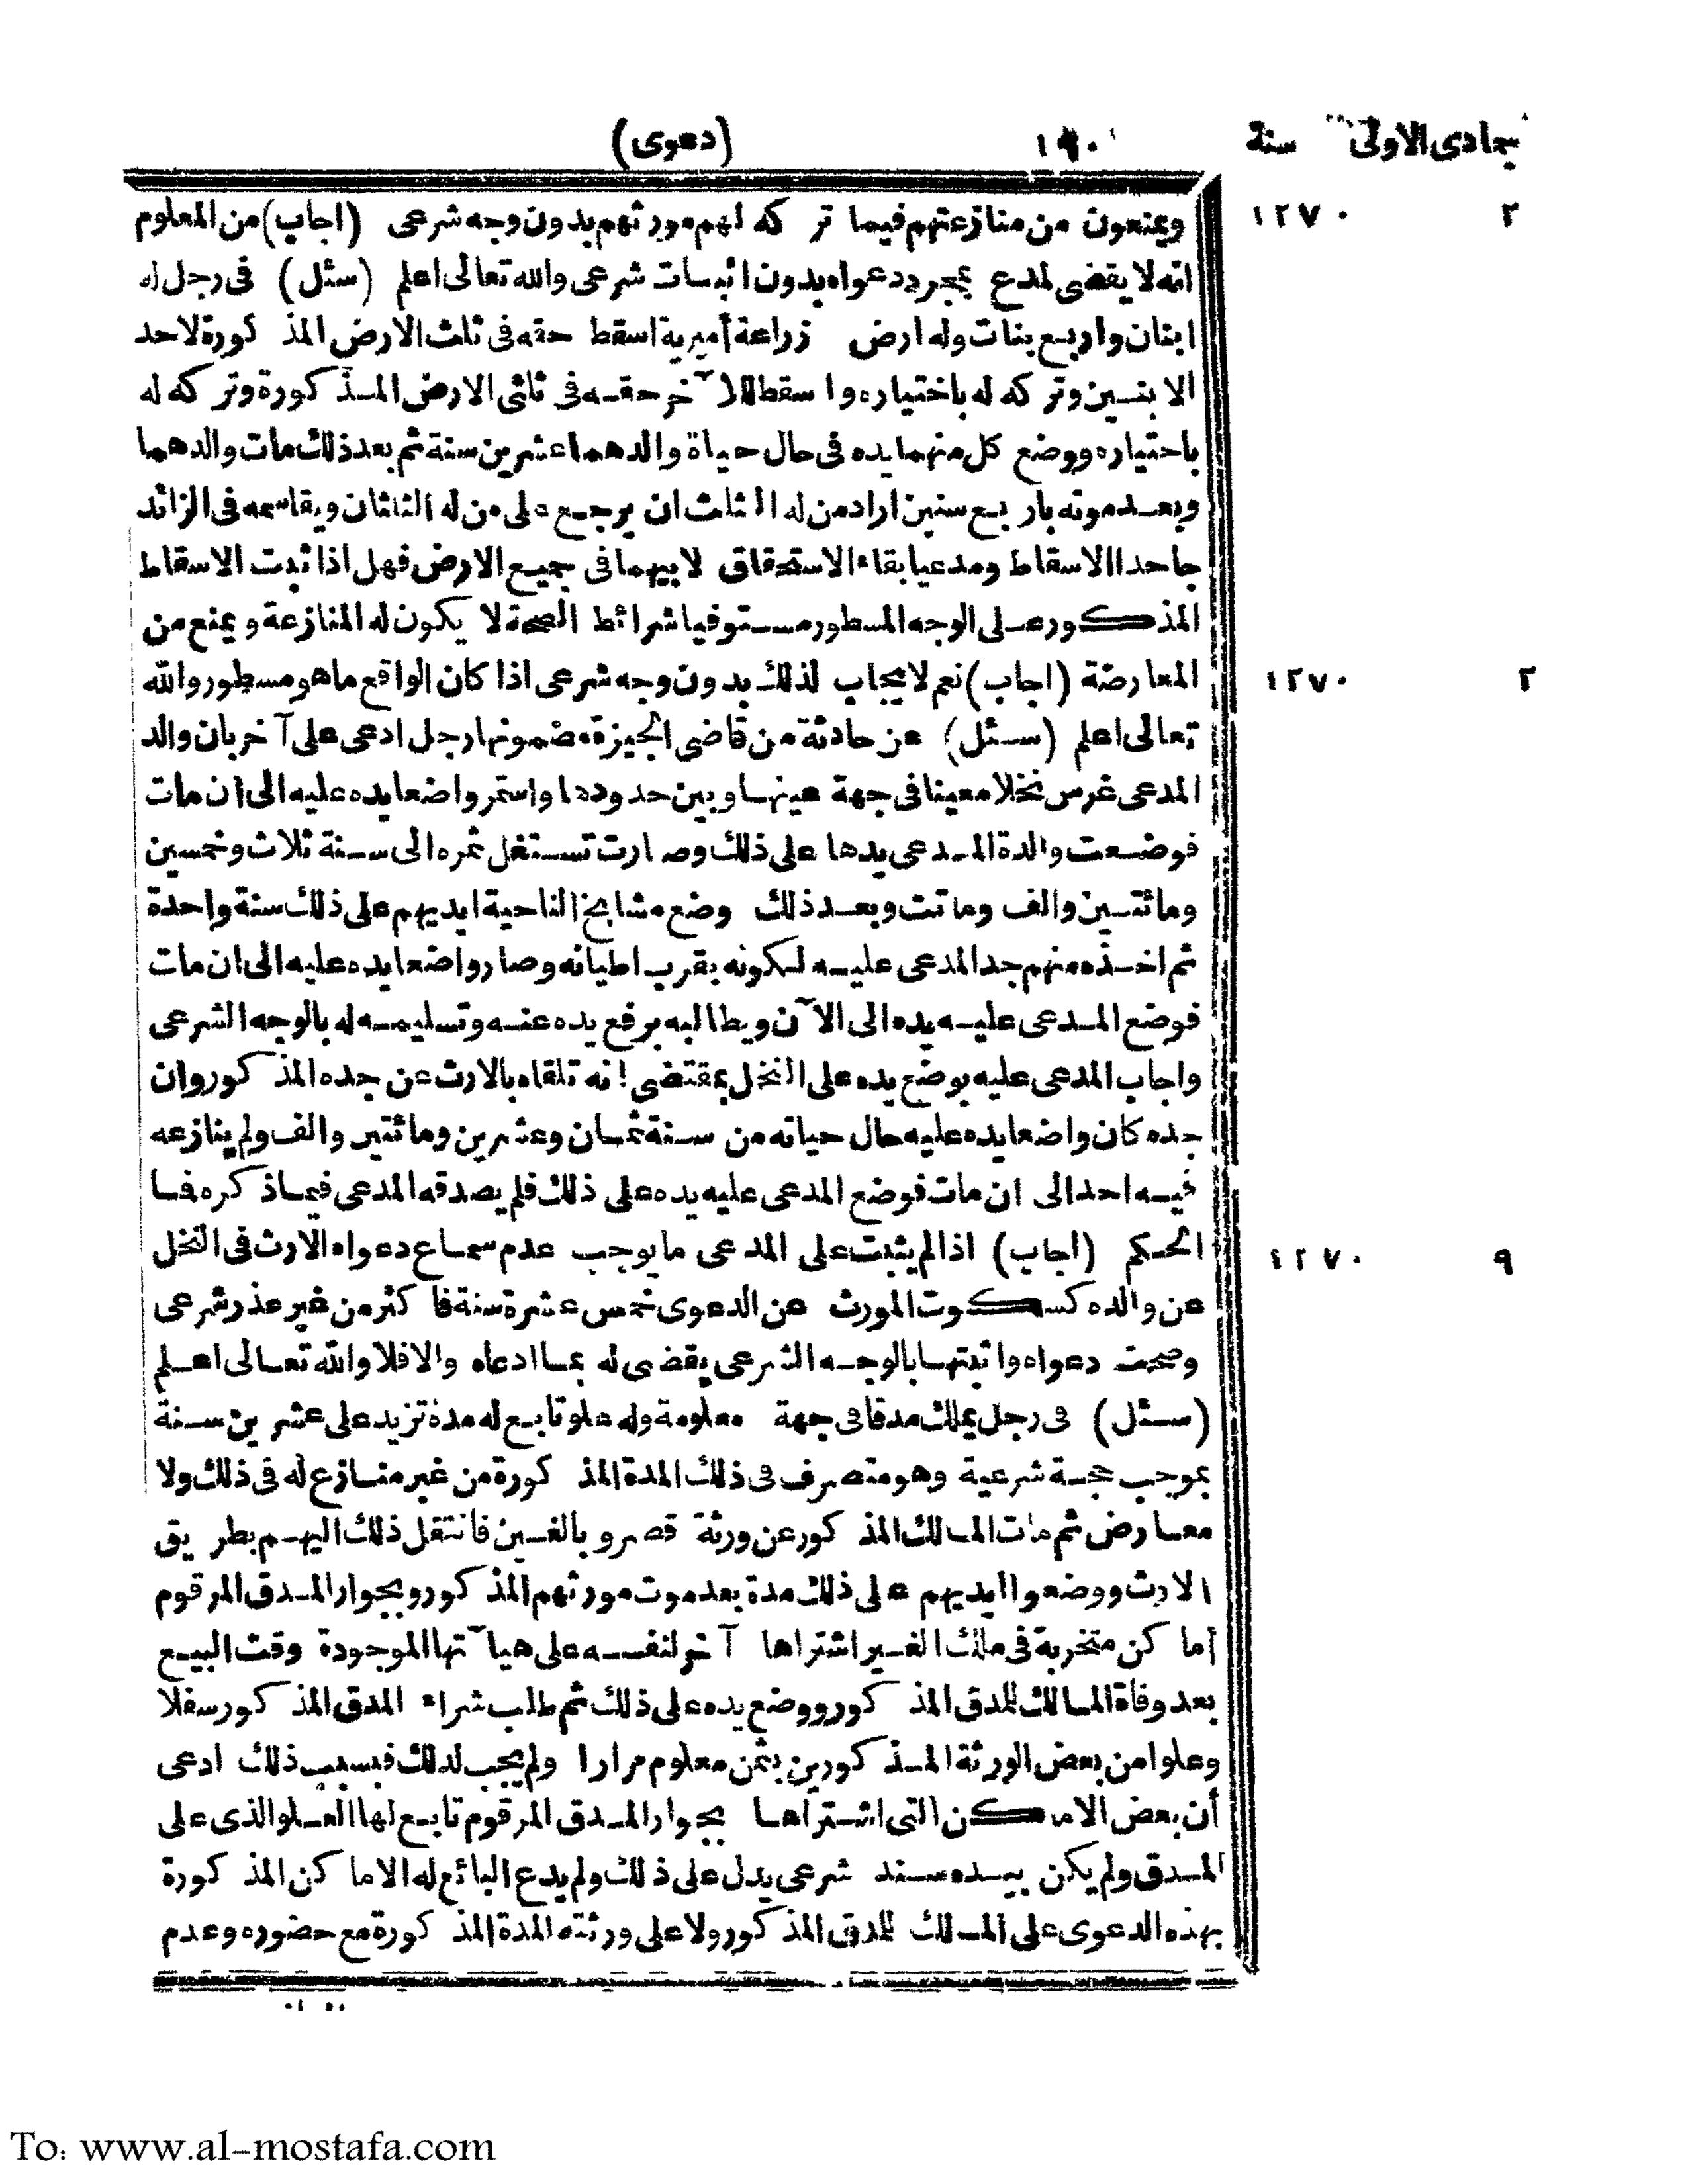 جمادى الاولى سنة
١٩٠
(دعوى)
٢ ١٢٧٠
ويمنعون من منازعتهم فيما تركه لهم مورثهم بدون وجه شرعى (اجاب) من المعلوم
انه لا يقضى لمدع بمجرد دعواه بدون اثبات شرعى والله تعالى اعلم (سئل) فى رجل له
ابنان واربع بنات وله ارض زراعة أميرية اسقط حقه فى ثلث الارض المذكورة لاحد
الابنين وتركه له باختياره واسقط للآخر حقه فى ثلثى الارض المذكورة وتركه له
باختياره ووضع كل منهما يده فى حال حياة والدهما عشرين سنة ثم بعد ذلك مات والدهما
وبعد موته باربع سنين اراد من له الثلث ان يرجع على من له الثلثان ويقاسمه فى الزائد
جاحدا الاسقاط ومدعيا بقاء الاستحقاق لابيهما فى جميع الارض فهل اذا ثبت الاسقاط
المذكور على الوجه المسطور مستوفيا شرائط الصحة لا يكون له المنازعة ويمنع من
المعارضة (اجاب) نعم لا يجاب لذلك بدون وجه شرعى اذا كان الواقع ما هو مسطور والله
٢ ١٢٧٠
تعالى اعلم (سئل) عن حادثة من قاضى الجيزة مضمونها رجل ادعى على آخر بان والد
المدعى غرس نخلا معينا فى جهة عينها وبين حدودها واستمر واضعا يده عليه الى ان مات
فوضعت والدة المدعى يدها على ذلك وصارت تستغل ثمره الى سنة ثلاث وخمسين
ومائتين والف وماتت وبعد ذلك وضع مشايخ الناحية ايديهم على ذلك سنة واحدة
ثم اخذه منهم جد المدعى عليه لكونه بقرب اطيانه وصار واضعا يده عليه الى ان مات
فوضع المدعى عليه يده الى الآن ويطالبه برفع يده عنه وتسليمه له بالوجه الشرعى
واجاب المدعى عليه بوضع يده على النخل بمقتضى انه تلقاه بالارث عن جده المذكور وان
جده كان واضعا يده عليه حال حياته من سنة ثمان وعشرين ومائتين والف ولم ينازعه
فيه احد الى ان مات فوضع المدعى عليه يده على ذلك فلم يصدقه المدعى فيما ذكره فما
الحكم (اجاب) اذا لم يثبت على المدعى ما يوجب عدم سماع دعواه الارث فى النخل
٩ ١٢٧٠
عن والده كسكوت المورث عن الدعوى خمس عشرة سنة فاكثر من غير عذر شرعى
وصحت دعواه واثبتها بالوجه الشرعى يقضى له بما ادعاه والا فلا والله تعالى اعلم
(سئل) فى رجل يملك مدقا فى جهة معلومة وله علو تابع له مدة تزيد على عشرين سنة
بموجب حجة شرعية وهو متصرف فى ذلك المدة المذكورة من غير منازع له فى ذلك ولا
معارض ثم مات المالك المذكور عن ورثة قصر وبالغين فانتقل ذلك اليهم بطريق
الارث ووضعوا ايديهم على ذلك مدة بعد موت مورثهم المذكور وبجوار المدق المرقوم
أماكن متخربة فى ملك الغير اشتراها آخر لنفسه على هيآتها الموجودة وقت البيع
بعد وفاة المالك للمدق المذكور ووضع يده على ذلك ثم طلب شراء المدق المذكور سفلا
وعلوا من بعض الورثة المذكورين بثمن معلوم مرارا ولم يجب لذلك فبسبب ذلك ادعى
أن بعض الاماكن التى اشتراها بجوار المدق المرقوم تابع لها العلو الذى على
المدق ولم يكن بيده سند شرعى يدل على ذلك ولم يدع البائع له الاماكن المذكورة
بهذه الدعوى على المالك للمدق المذكور ولا على ورثته المدة المذكورة مع حضوره وعدم
To: www.al-mostafa.com